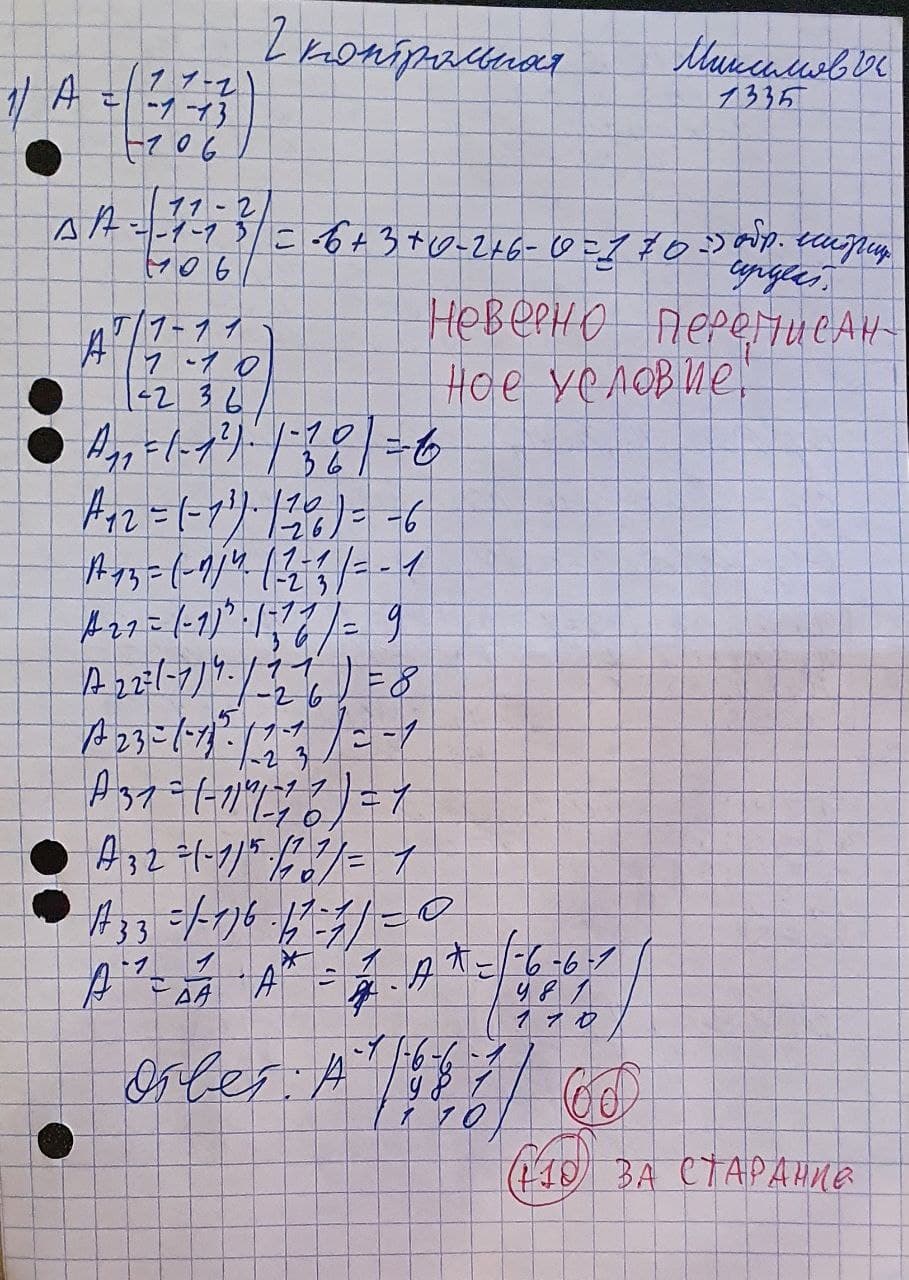 2 контрольная
Максимов
1335
1) A = (1 1 -2
-1 -1 3
-1 0 6)
ΔA = |1 1 -2
-1 -1 3
-1 0 6| = -6+3+0-2+6-0=1≠0 => обр. матриц. сущест.
Неверно переписан-
ное условие!
Aᵀ (1 -1 1
1 -1 0
-2 3 6)
A₁₁ = (-1²) · |-1 0
3 6| = -6
A₁₂ = (-1³) · (1 0
-2 6) = -6
A₁₃ = (-1)⁴ · (1 -1
-2 3) = -1
A₂₁ = (-1)³ · (-1 1
3 6) = 9
A₂₂ = (-1)⁴ · (1 1
-2 6) = 8
A₂₃ = (-1)⁵ · (1 -1
-2 3) = -1
A₃₁ = (-1)⁴ (-1 1
-1 0) = 1
A₃₂ = (-1)⁵ · (1 1
1 0) = 1
A₃₃ = (-1)6 · (1 -1
1 -1) = 0
A⁻¹ = 1/ΔA · A* = 1/1 · A* = (-6 -6 -1
9 8 1
1 1 0)
Ответ: A⁻¹ (-6 -6 -1
9 8 1
1 1 0)
0б
+1б за старание